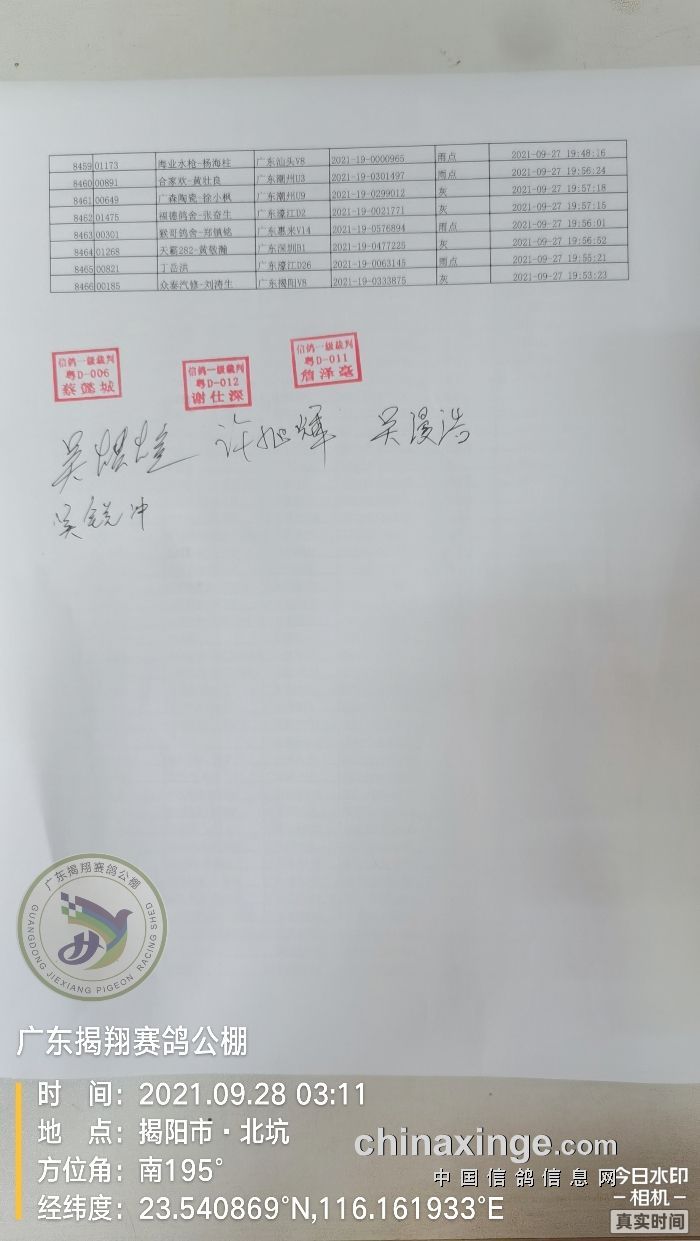 8459 01173 海业水枪-杨海柱 广东汕头V8 2021-19-0000965 雨点 2021-09-27 19:48:16
8460 00891 合家欢-黄壮良 广东潮州U3 2021-19-0301497 雨点 2021-09-27 19:56:24
8461 00649 广森陶瓷-徐小枫 广东潮州U9 2021-19-0299012 灰 2021-09-27 19:57:18
8462 01475 福德鸽舍-张奋生 广东濠江D2 2021-19-0021771 灰 2021-09-27 19:57:15
8463 00301 猴哥鸽舍-郑镇铭 广东惠来V14 2021-19-0576894 雨点 2021-09-27 19:56:01
8464 01268 天霸282-黄敬瀚 广东深圳B1 2021-19-0477225 灰 2021-09-27 19:56:52
8465 00821 丁岳洪 广东濠江D26 2021-19-0063145 雨点 2021-09-27 19:55:21
8466 00185 众泰汽修-刘涛生 广东揭阳V8 2021-19-0333875 灰 2021-09-27 19:53:23
信鸽一级裁判
粤D-006
蔡懿城
信鸽一级裁判
粤D-012
谢仕深
信鸽一级裁判
粤D-011
詹泽亳
吴 许 辉 吴漫浩
吴锐冲
广东揭翔赛鸽公棚
GUANGDONG JIEXIANG PIGEON RACING SHED
广东揭翔赛鸽公棚
时 间: 2021.09.28 03:11
地 点: 揭阳市·北坑
方位角: 南195°
经纬度: 23.540869°N,116.161933°E
chinaxinge.com
中国信鸽信息网
今日水印
-相机-
真实时间